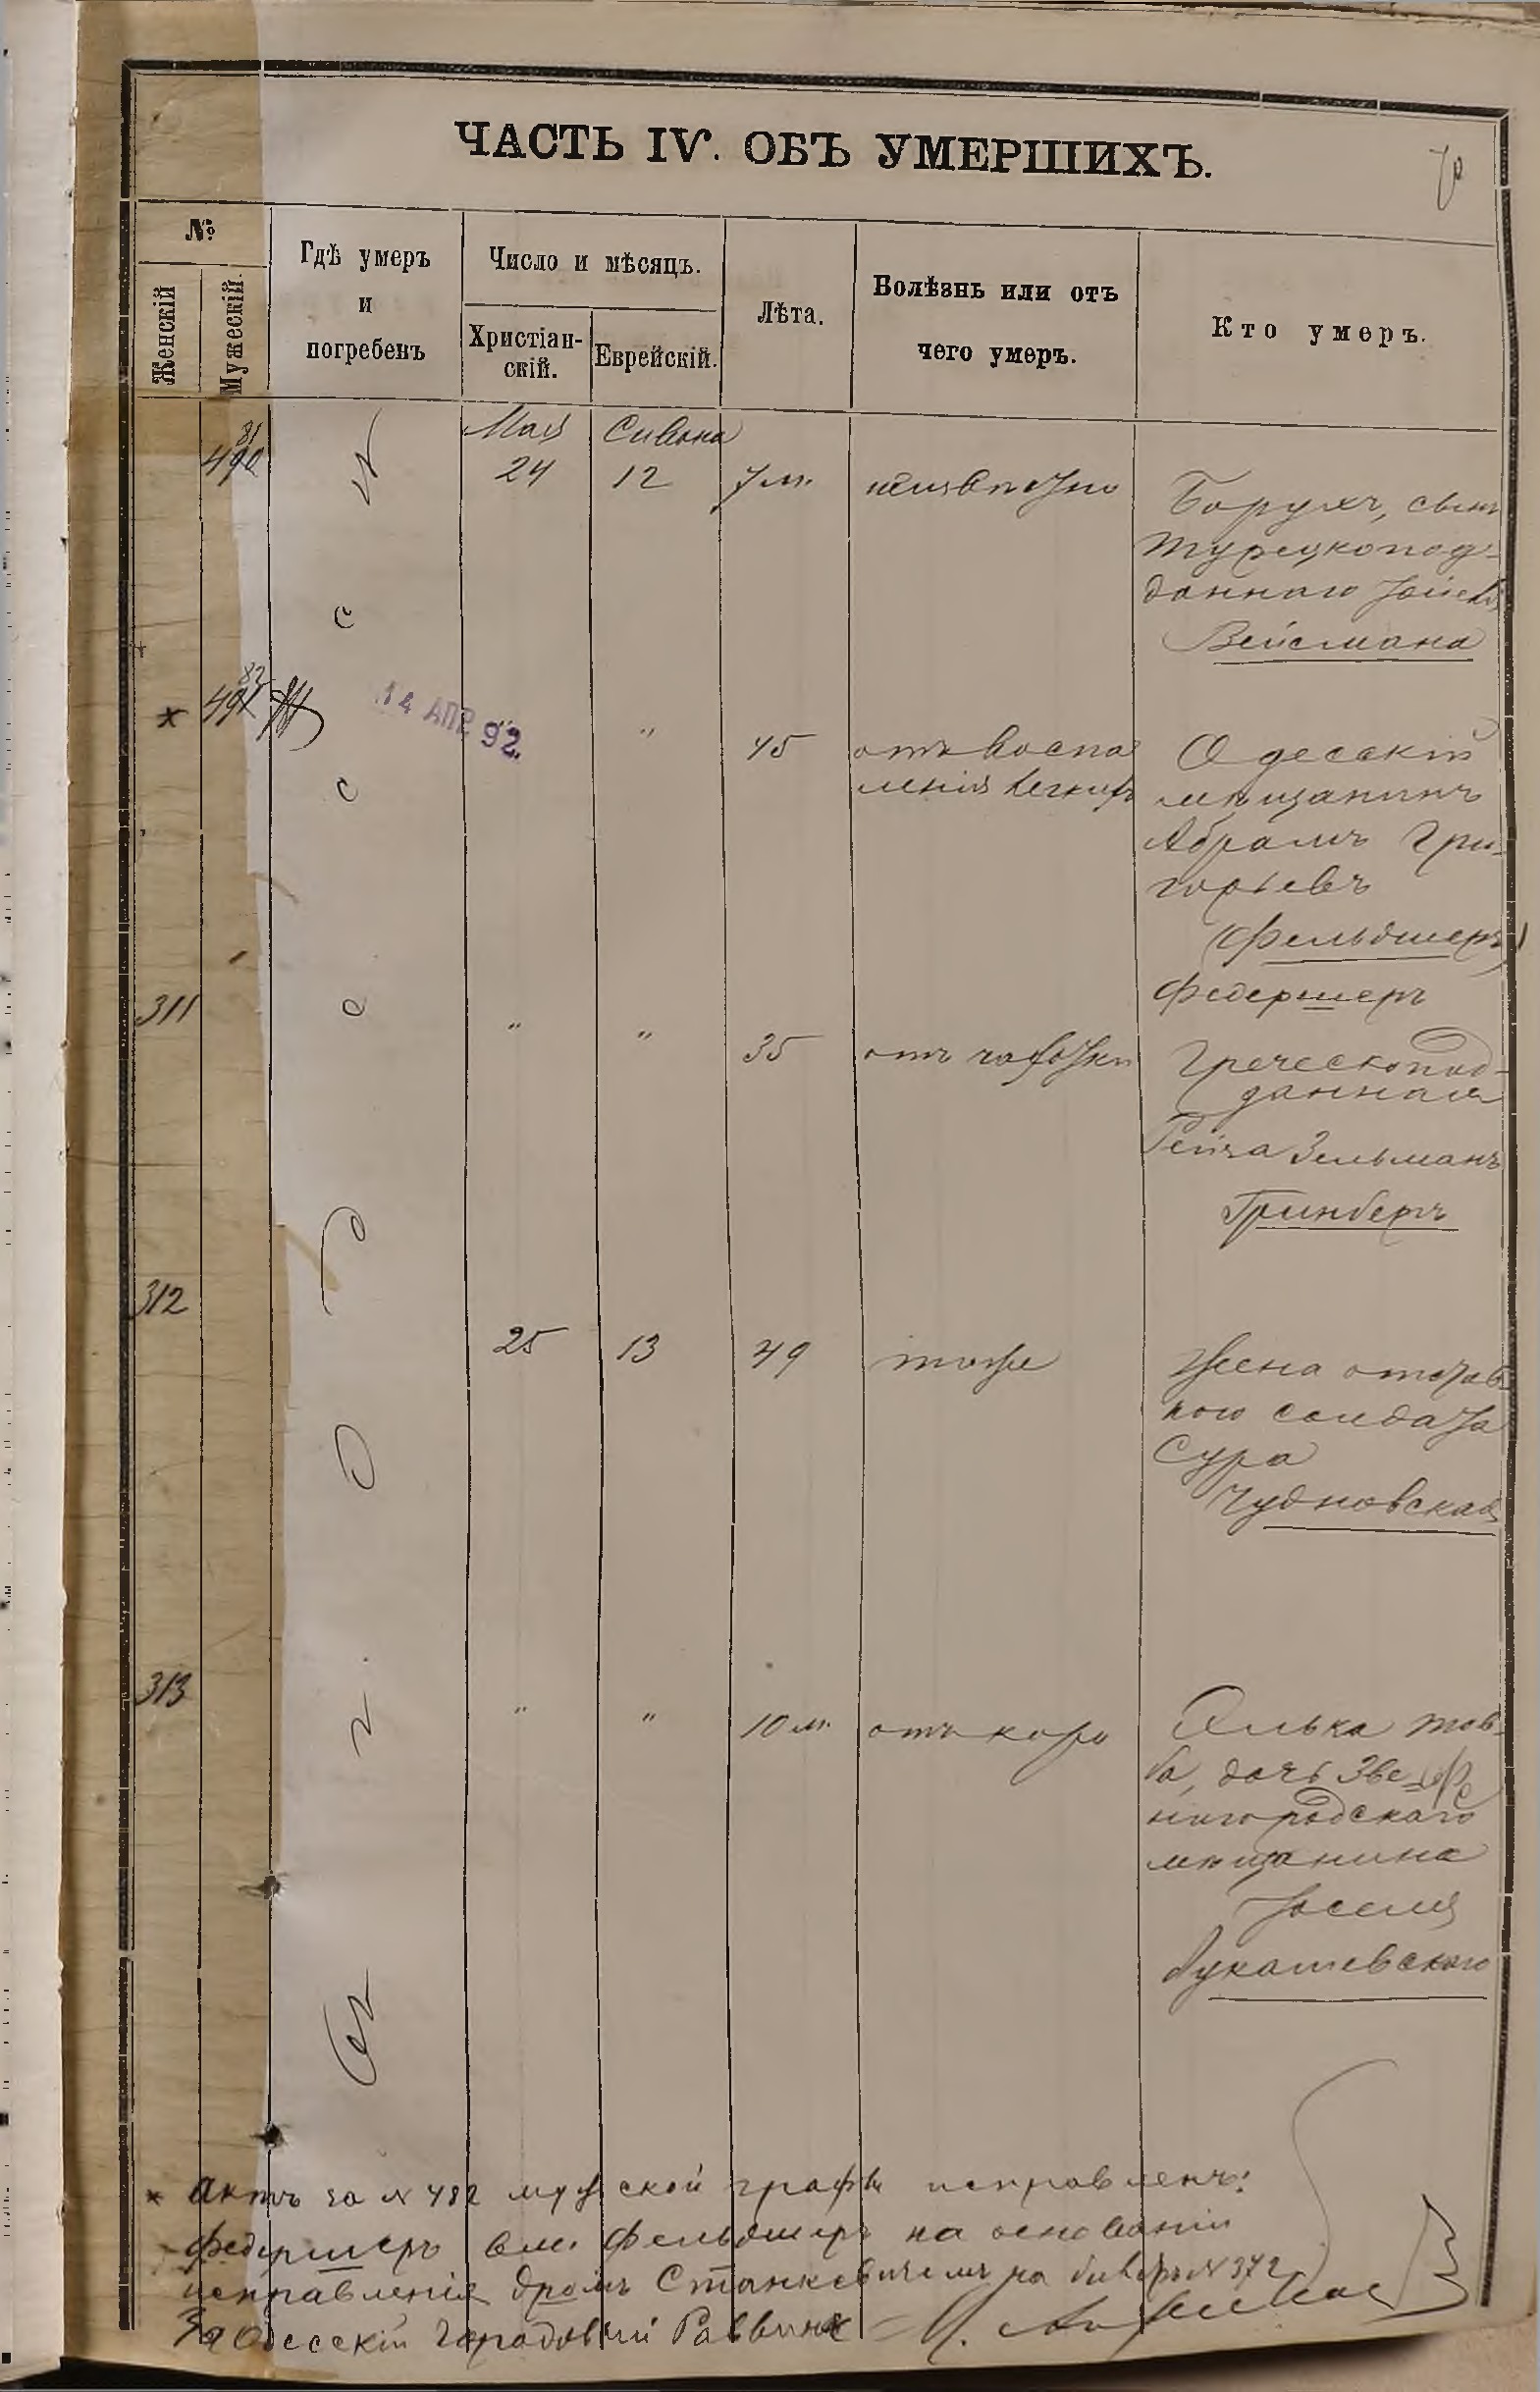 ЧАСТЬ IV. ОБЪ УМЕРШИХЪ.
№
Женскій
Мужескій.
Гдѣ умеръ
и
погребенъ
Число и мѣсяцъ.
Христіан-
скій.
Еврейскій.
Лѣта.
Болѣзнь или отъ
чего умеръ.
Кто умеръ.
Мая Сивана
490 81 24 12 7 м. неизвѣстно
Борухъ, сынъ
турецкопод-
даннаго
Вейсмана
* 491 82 14 АПР 92 " 45 отъ воспа
ленія легкихъ
Одесскій
мѣщанинъ
Абрамъ Гри-
горьевъ
(Фельдшеръ)
Федершеръ
311 " " 35 отъ чахотки
Греческопод-
данная
Зельманъ
Гринбергъ
312 25 13 49 тоже
Жена отстав-
ного солдата
Сура
Чудновская
313 " " 10 м. отъ кори
Элька Тов-
ба, дочь Зве-
нигородскаго
мѣщанина
Іоселя
Лукашевскаго
Въ г. Одессѣ
* Актъ за № 482 мужской графы исправленъ:
Федершеръ вм. Фельдшеръ на основаніи
исправленія дромъ Станкевичемъ на билетѣ № 372
За Одесскій Городовой Раввинъ